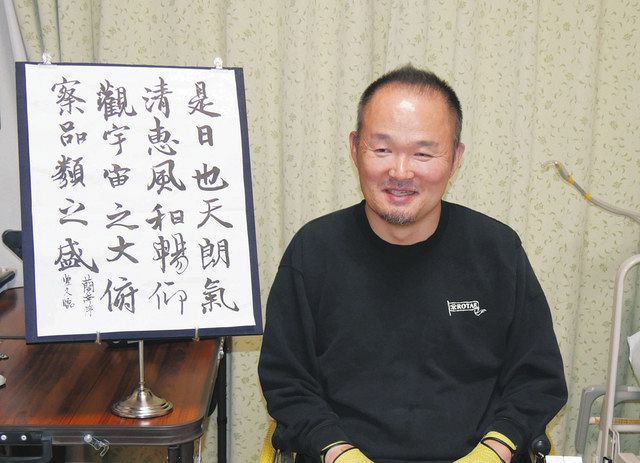 是日也天朗氣
清恵風和暢仰
觀宇宙之大俯
察品類之盛
蘭亭序